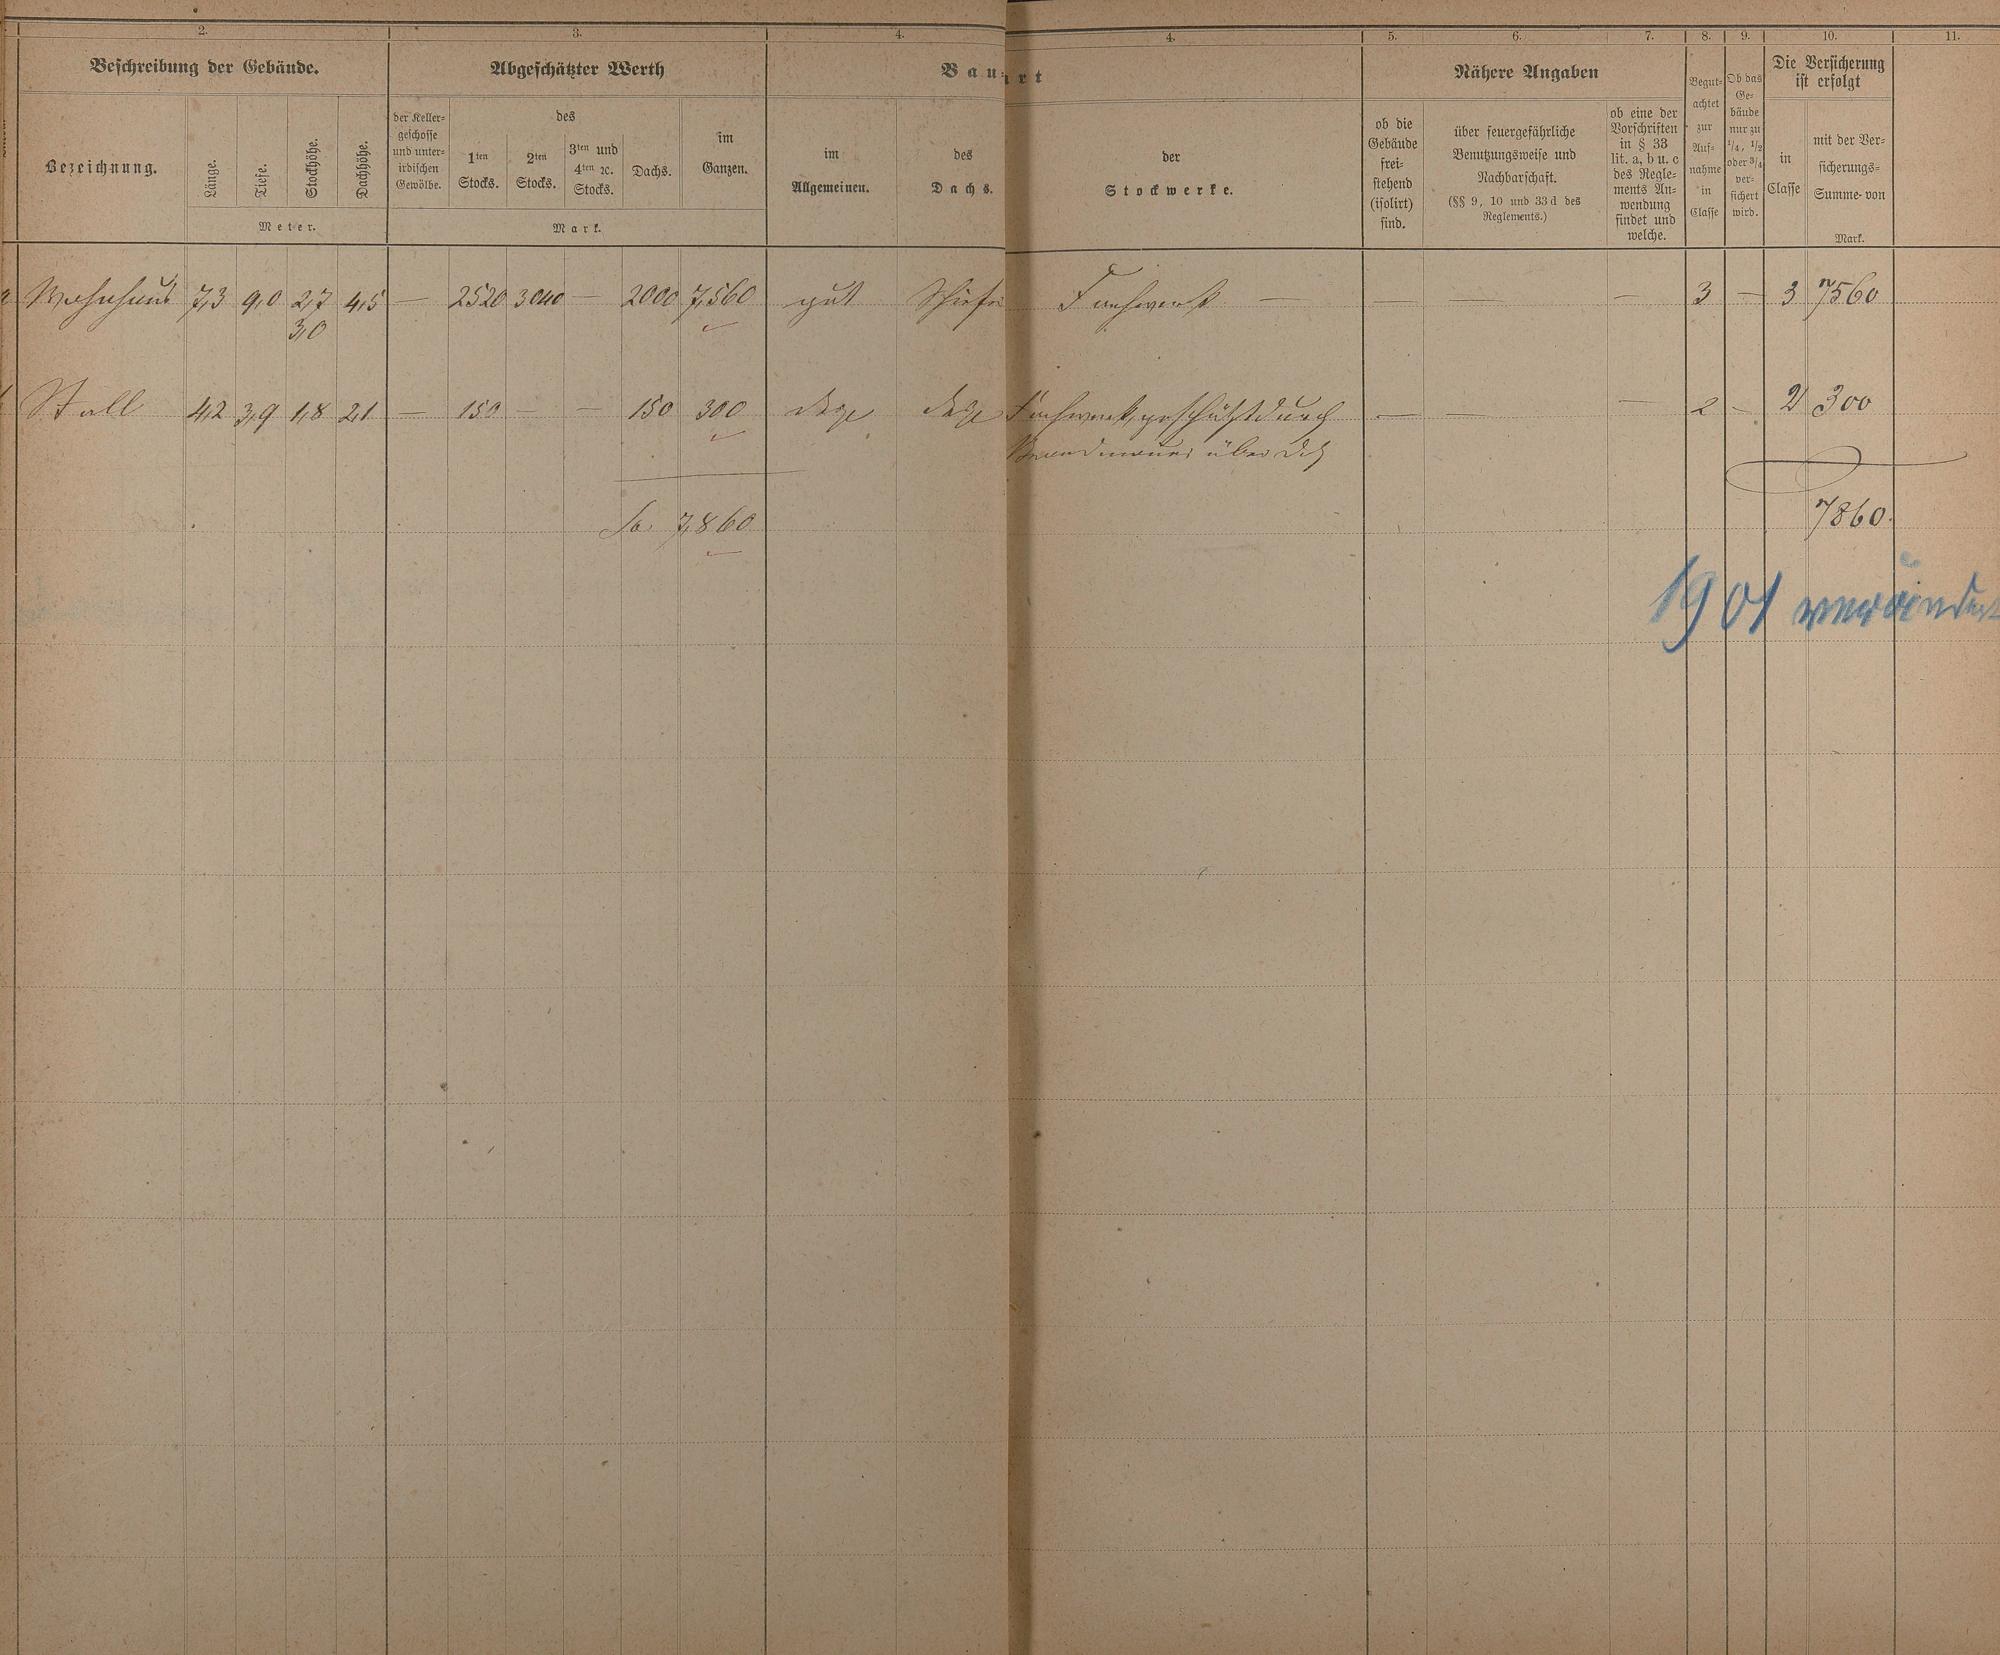 2. 3. 4. 4. 5. 6. 7. 8. 9. 10. 11.
Beschreibung der Gebäude.
Abgeschätzter Werth
Bauart
Nähere Angaben
Begut-
achtet
zur
Auf-
nahme
in
Classe
Ob das
Ge-
bäude
nur zu
1/4, 1/2
oder 3/4
ver-
sichert
wird.
Die Versicherung
ist erfolgt
Bezeichnung.
Länge.
Tiefe.
Stockhöhe.
Dachhöhe.
Meter.
der Keller-
geschosse
und unter-
irdischen
Gewölbe.
des
1ten
Stocks.
2ten
Stocks.
3ten und
4ten ꝛc.
Stocks.
Dachs.
im
Ganzen.
Mark.
im
Allgemeinen.
des
Dachs.
der
Stockwerke.
ob die
Gebäude
frei-
stehend
(isolirt)
sind.
über feuergefährliche
Benutzungsweise und
Nachbarschaft.
(§§ 9, 10 und 33 d des
Reglements.)
ob eine der
Vorschriften
in § 33
lit. a, b u. c
des Regle-
ments An-
wendung
findet und
welche.
in
Classe
mit der Ver-
sicherungs-
Summe von
Mark.
Wohnhaus 7,3 9,0 2,7 4,5 — 2520 3040 — 2000 7,560 gut Schiefer Fachwerk — — — — 3 — 3 7560
3,0
Stall 4,2 3,9 1,8 2,1 — 150 — — 150 300 dsgl dsgl Fachwerk, geschützt durch — — — 2 — 2 300
Brandmauer über Dch
Sa. 7,860
7860.
1901 verändert